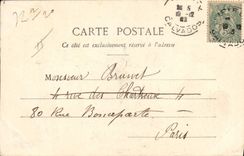 CARTE POSTALE
Ce côté est exclusivement réservé à l'adresse
CALVADOS
Monsieur Brunet
4 rue des Chartreux 4
80 Rue Bonaparte
Paris